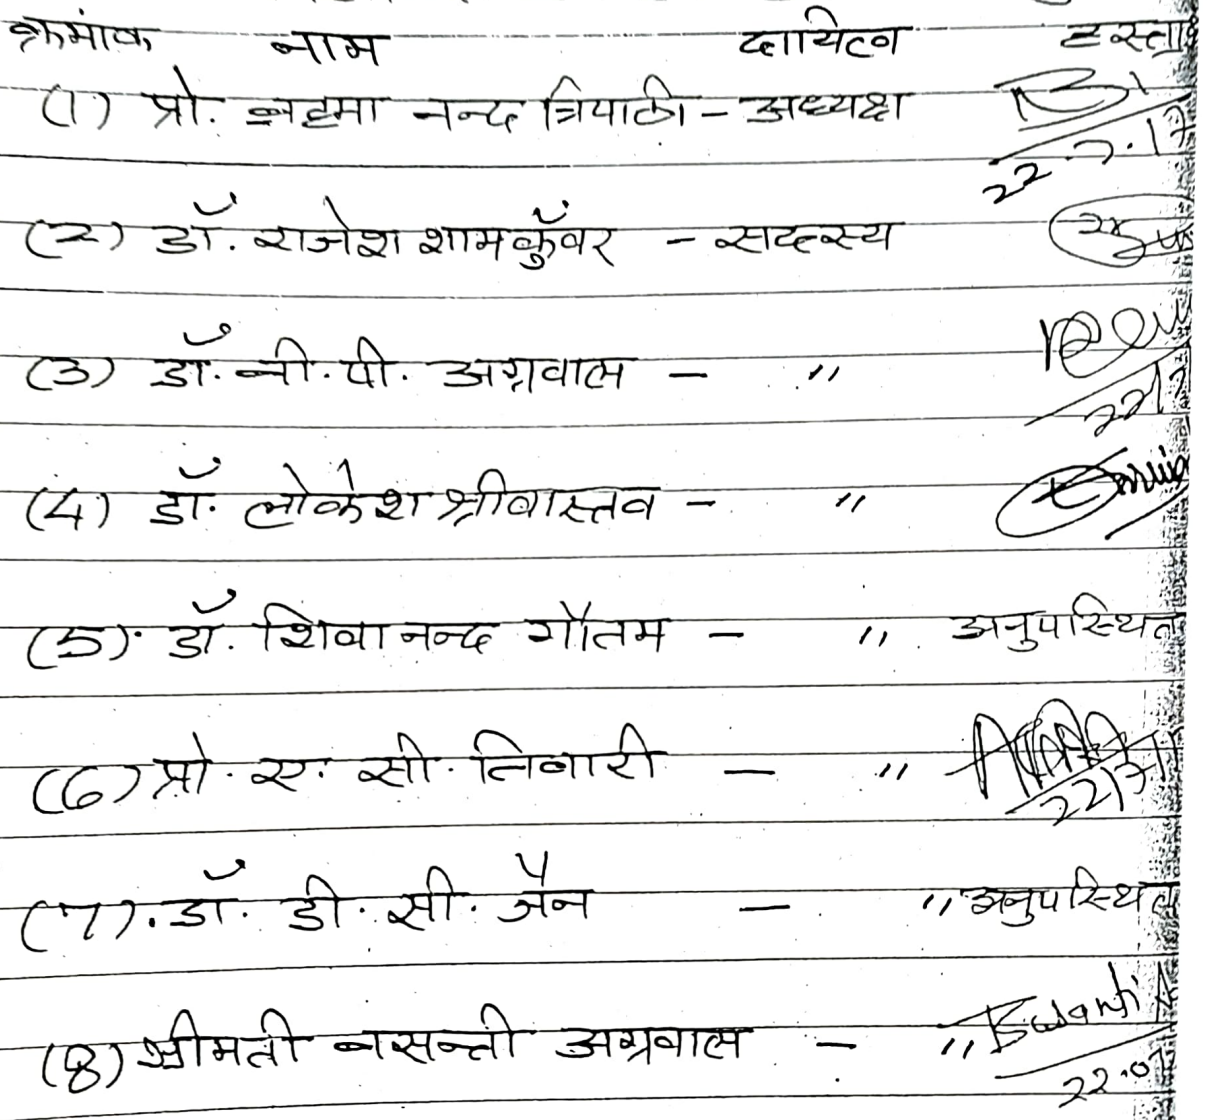 क्रमांक नाम दायित्व हस्ताक्ष
(1) प्रो. ब्रह्मा नन्द त्रिपाठी - अध्यक्ष
22.7.17
(2) डॉ. राजेश शामकुँवर - सदस्य
(3) डॉ. बी. पी. अग्रवाल - "
22/7
(4) डॉ. लोकेश श्रीवास्तव - "
(5). डॉ. शिवा नन्द गौतम - " अनुपस्थित
(6) प्रो. ए. सी. तिवारी - "
22/7/1
(7). डॉ. डी. सी. जैन - " अनुपस्थित
(8) श्रीमती बसन्ती अग्रवाल - " Basanti A
22.07